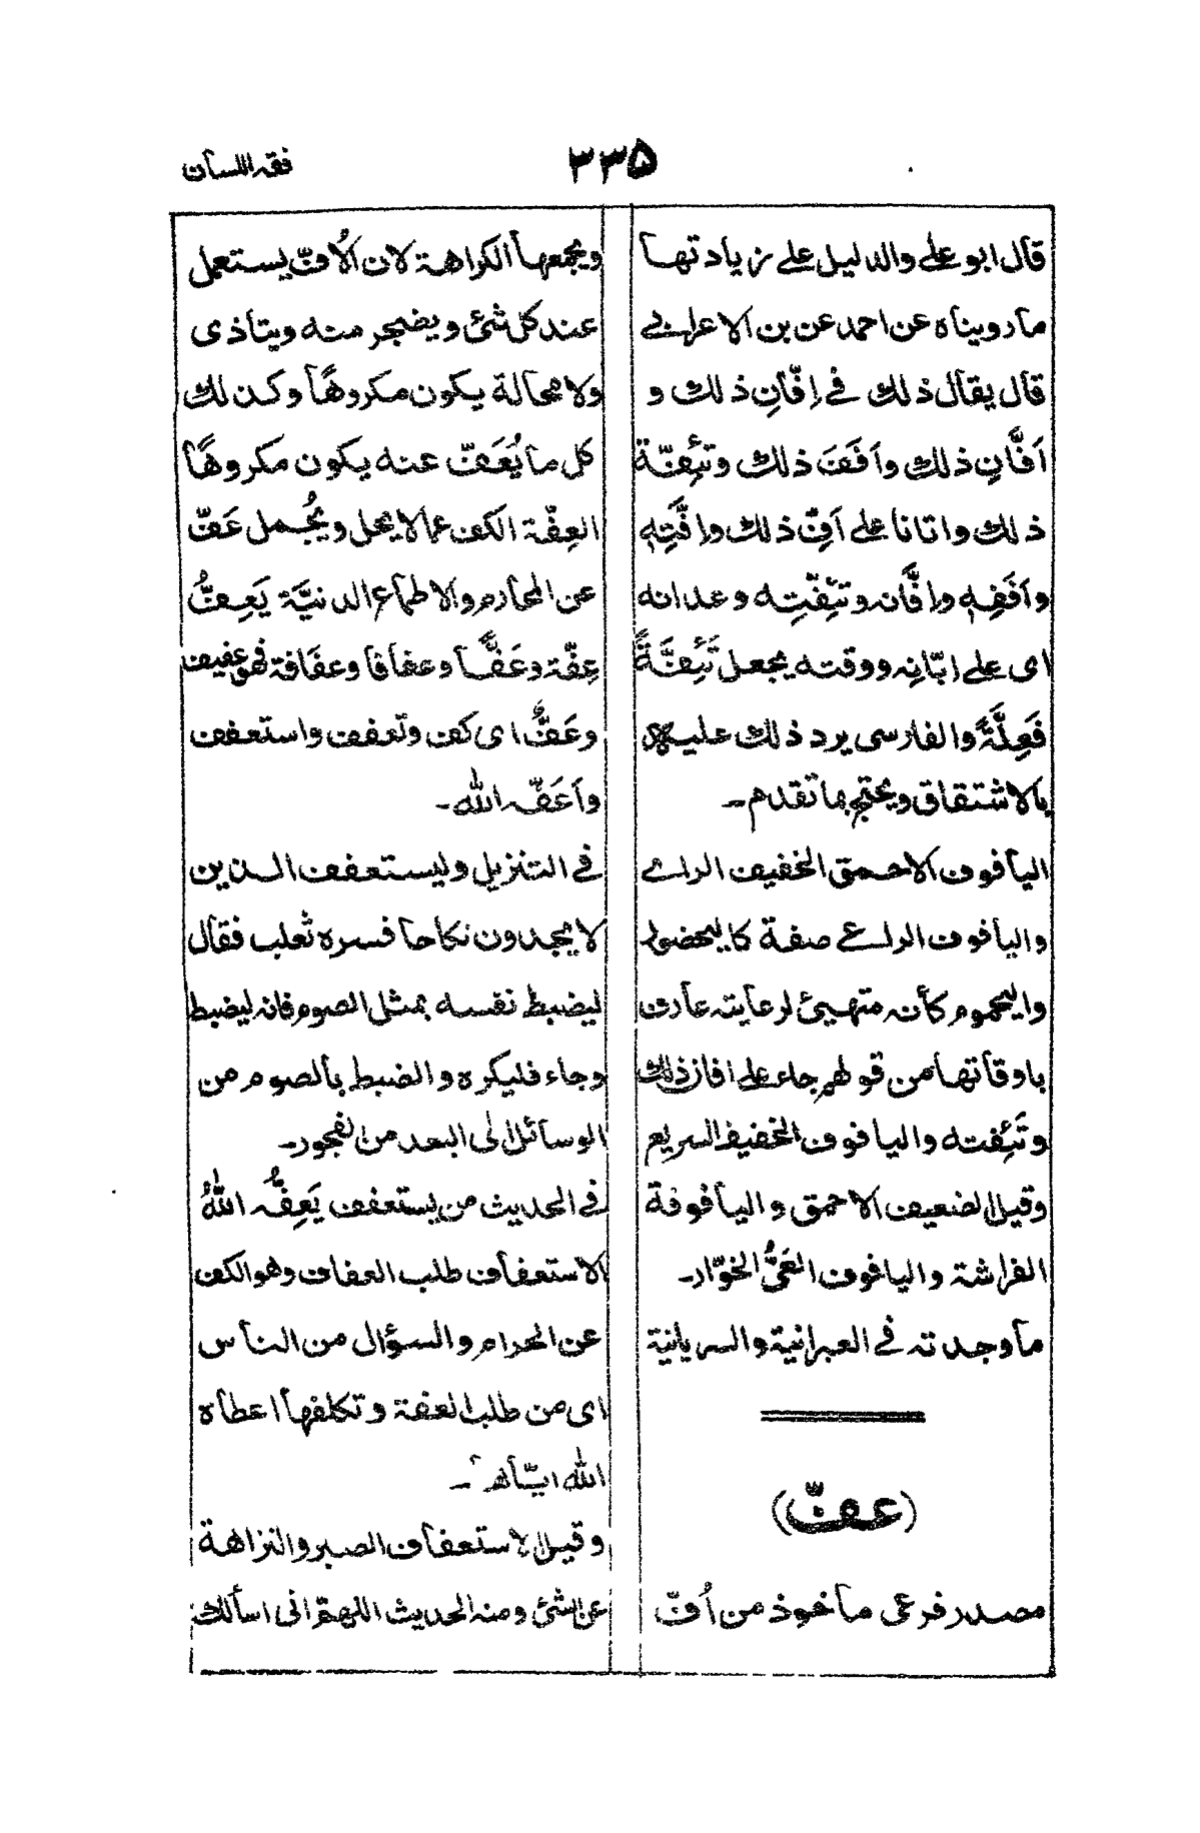 فقه اللسان
۲۳۵
قال ابو علي والدليل علي زيادتها
ما رويناه عن احمد عن بن الاعرابي
قال يقال ذلك في اِفّانِ ذلك و
اَفَّانِ ذلك واَفَفَ ذلك وتَئِفّة
ذلك واتانا علي اَفِّ ذلك واِفَّتِهٖ
واَفَفِهٖ واِفَّانه وتَئِفّتِه وعدانه
اى علي ابّانِه ووقته يجعل تَئِفَّةً
فَعِلَّةً والفارسى يرد ذلك عليه
بالاشتقاق ويحتج بما تقدم۔
اليافوف الاحمق الخفيف الراے
واليافوف الراعى صفة كاليحضوا
واليحموم كأنه متهيئ لرعايته عارف
باوقاتها من قولهم جاء علے افان ذلك
وتَئِفته واليافوف الخفيف السريع
وقيل الضعيف الاحمق واليافوفة
الفراشة واليافوف العَىُّ الخوّار۔
ما وجدته في العبرانية والسريانية
(عفّ)
مصدر فرعى ماخوذ من اُفّ
ويجمعها الكراهة لان الاُفّ يستعمل
عند كل شئ ويضجر منه ويتاذى
ولا محالة يكون مكروهًا وكذلك
كل ما يُعَفّ عنه يكون مكروهًا
العِفّة الكف عما لا يحل ويُجمل عَفّ
عن المحارم والاطماع الدنيَّة يَعِفُّ
عِفّة وعَفًّا وعفافا وعفَافة فهو عفيف
وعَفٌّ اى كف وتعفف واستعفف
واَعَفّه الله۔
في التنزيل وليستعفف الذين
لا يجدون نكاحا فسره ثعلب فقال
ليضبط نفسه بمثل الصوم فانه ليضبط
وجاء فليكره والضبط بالصوم من
الوسائل الى البعد من الفجور۔
في الحديث من يستعفف يَعِفُّه اللهُ
الاستعفاف طلب العفاف وهو الكف
عن الحرام والسؤال من الناس
اى من طلب العفة وتكلفها اعطاه
الله ايّاها۔
وقيل الاستعفاف الصبر والنزاهة
عن الشئ ومنه الحديث اللهم انى اسألك